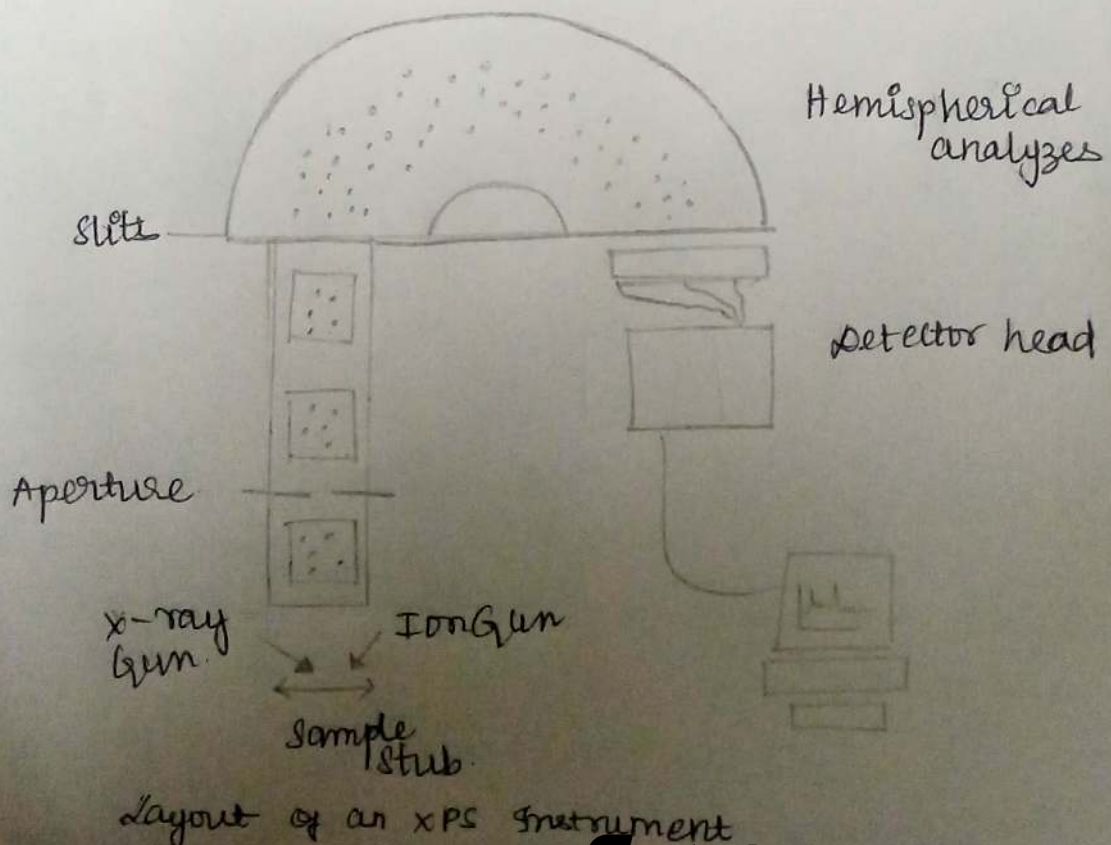 Hemispherical
analyzes
Slits
Detector head
Aperture
X-ray
Gun.
IonGun
Sample
Stub.
Layout of an XPS Instrument